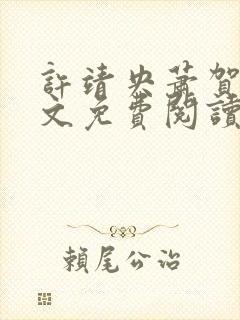 許靖央蕭賀
文免費閱讀
賴尾公治